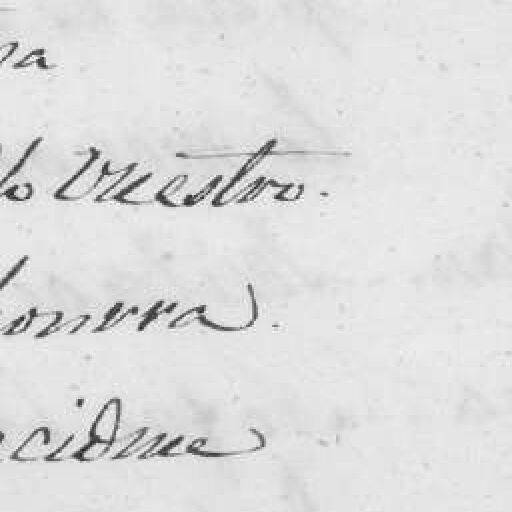 na
lo Vuestro.
honrra.
cidme